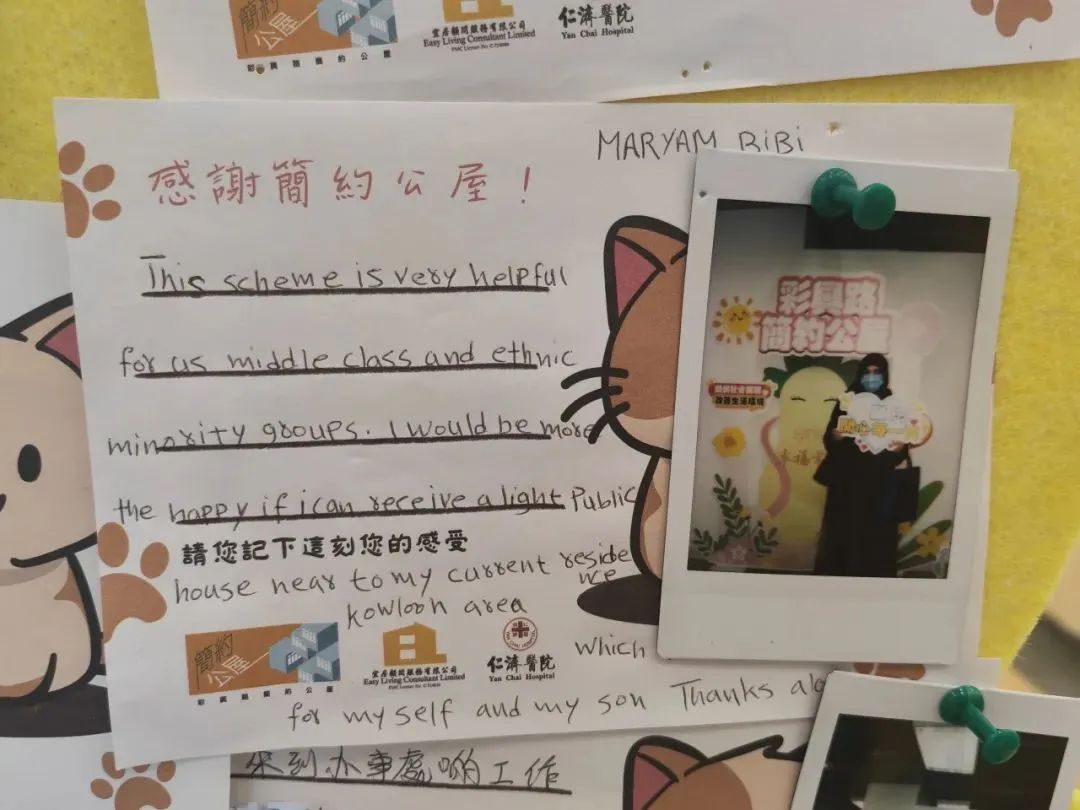 簡約
公屋
彩興路簡約公屋
宜居顧問服務有限公司
Easy Living Consultant Limited
仁濟醫院
Yan Chai Hospital
MARYAM BiBi
感謝簡約公屋！
This scheme is very helpful
for us middle class and ethnic
minority groups. I would be more
the happy if i can receive a light Public
請您記下這刻您的感受
house near to my current reside
nce
kowloon area
which
for my self and my son Thanks
彩興路
簡約公屋
改善生活環境
簡約
公屋
彩興路簡約公屋
宜居顧問服務有限公司
Easy Living Consultant Limited
仁濟醫院
Yan Chai Hospital
來到办事處啲工作